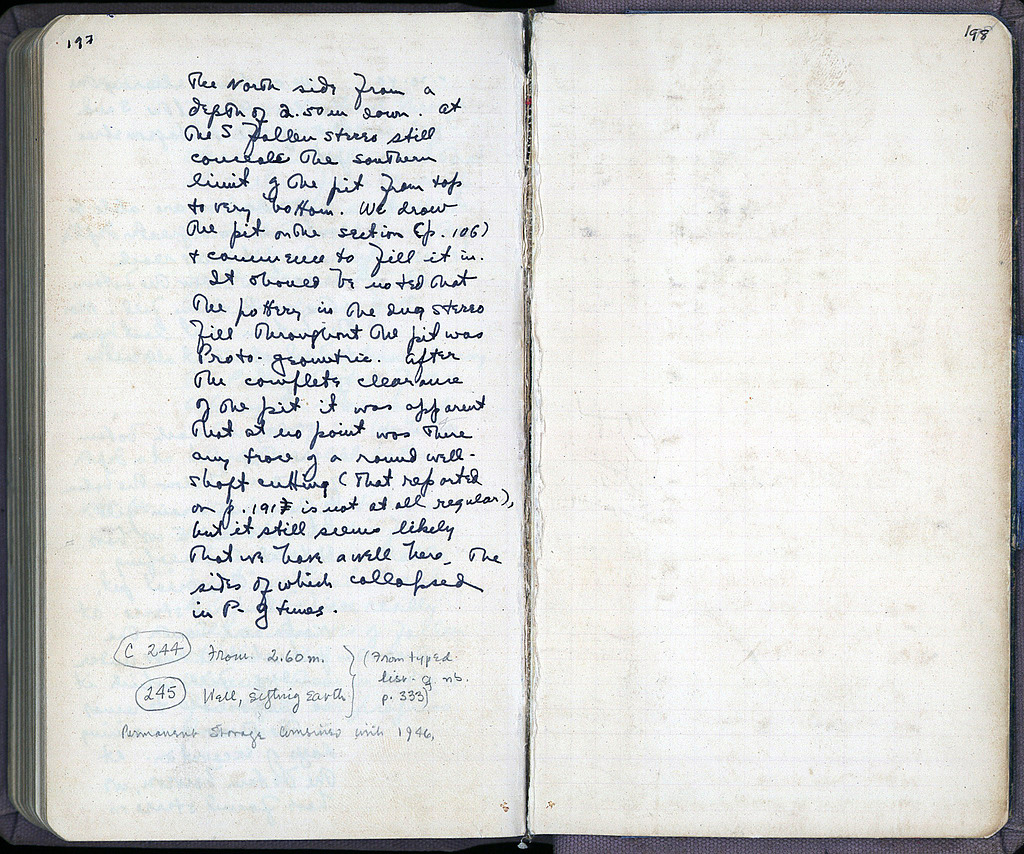 197
The North side from a
depth of 2.50 m down. At
the S fallen stereo still
conceals the southern
limit of the pit from top
to very bottom. We draw
the pit on the section (p. 106)
+ commence to fill it in.
It should be noted that
the pottery in the dug stereo
fill throughout the pit was
Proto-geometric. After
the complete clearance
of the pit it was apparent
that at no point was there
any trace of a round well-
shaft cutting (that reported
on p. 191 is not at all regular),
but it still seems likely
that we have a well here, the
sides of which collapsed
in P-G times.
C 244 From 2.60 m. (From typed
list of nb.
245 Well, sifting Earth p. 333)
Permanent Storage Combined with 1946,
198